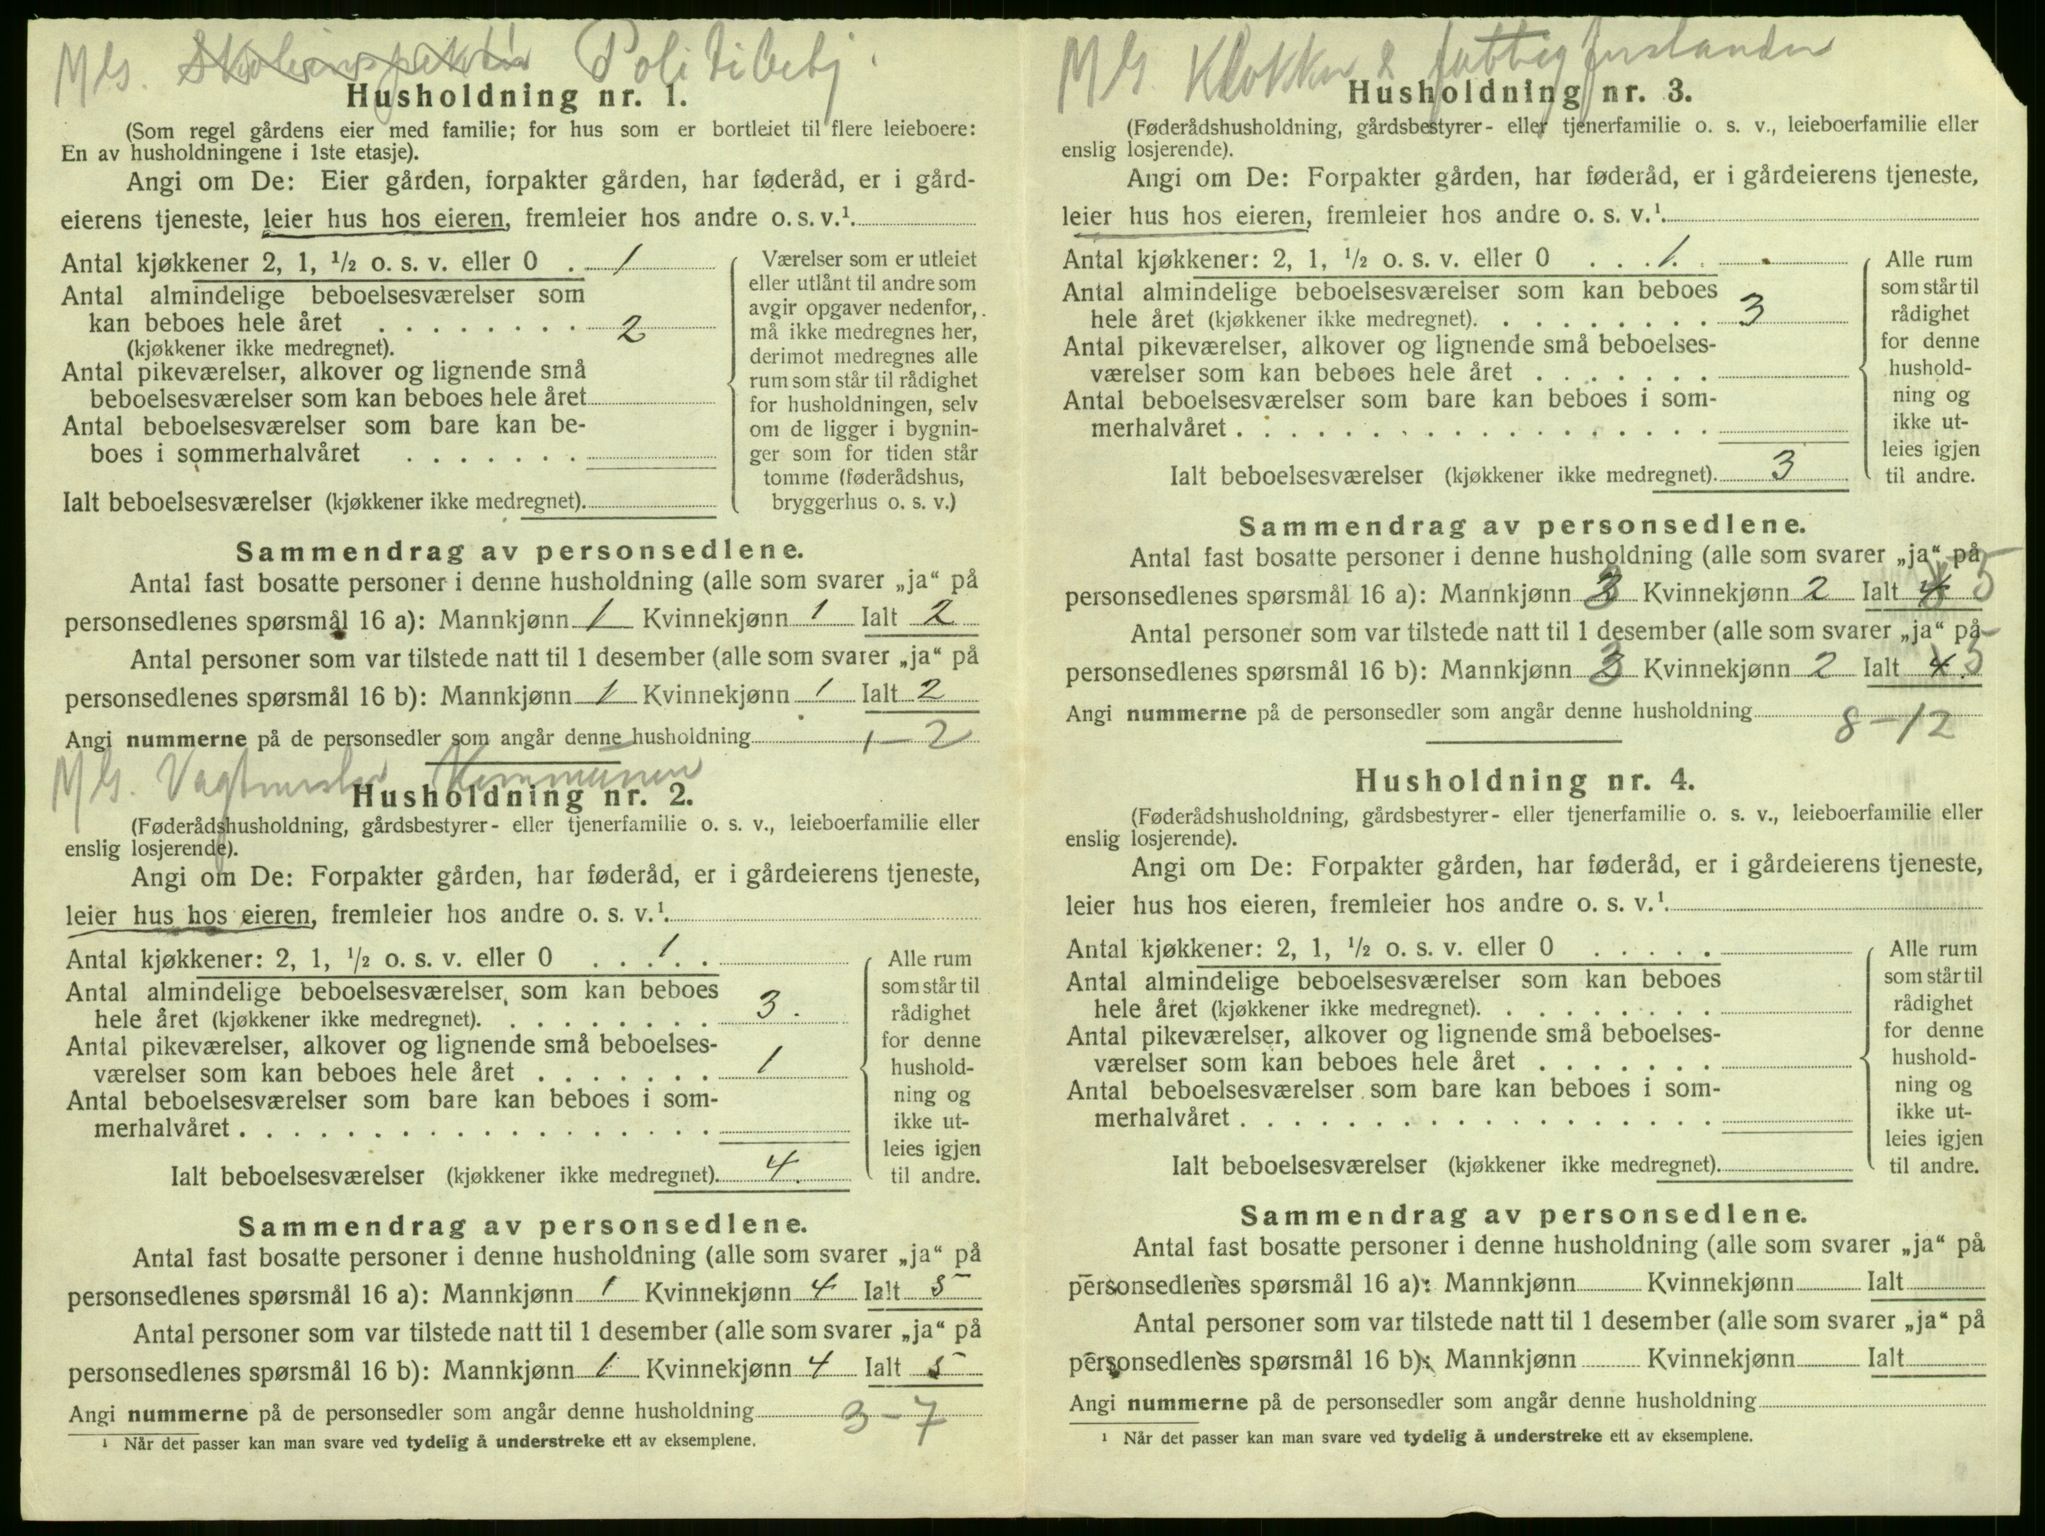 M b. Skoleinspektør Politibetj.
Husholdning nr. 1.
(Som regel gårdens eier med familie; for hus som er bortleiet til flere leieboere:
En av husholdningene i 1ste etasje).
Angi om De: Eier gården, forpakter gården, har føderåd, er i gård-
eierens tjeneste, leier hus hos eieren, fremleier hos andre o. s. v.¹
Antal kjøkkener 2, 1, ½ o. s. v. eller 0 . 1
Antal almindelige beboelsesværelser som
kan beboes hele året . . . . . . . . 2
(kjøkkener ikke medregnet).
Antal pikeværelser, alkover og lignende små
beboelsesværelser som kan beboes hele året
Antal beboelsesværelser som bare kan be-
boes i sommerhalvåret . . . . . . .
Ialt beboelsesværelser (kjøkkener ikke medregnet).
Værelser som er utleiet
eller utlånt til andre som
avgir opgaver nedenfor,
må ikke medregnes her,
derimot medregnes alle
rum som står til rådighet
for husholdningen, selv
om de ligger i bygnin-
ger som for tiden står
tomme (føderådshus,
bryggerhus o. s. v.)
Sammendrag av personsedlene.
Antal fast bosatte personer i denne husholdning (alle som svarer „ja“ på
personsedlenes spørsmål 16 a): Mannkjønn 1 Kvinnekjønn 1 Ialt 2
Antal personer som var tilstede natt til 1 desember (alle som svarer „ja“ på
personsedlenes spørsmål 16 b): Mannkjønn 1 Kvinnekjønn 1 Ialt 2
Angi nummerne på de personsedler som angår denne husholdning 1-2
M b. Vagtmester Kommunen
Husholdning nr. 2.
(Føderådshusholdning, gårdsbestyrer- eller tjenerfamilie o. s. v., leieboerfamilie eller
enslig losjerende).
Angi om De: Forpakter gården, har føderåd, er i gårdeierens tjeneste,
leier hus hos eieren, fremleier hos andre o. s. v.¹
Antal kjøkkener: 2, 1, ½ o. s. v. eller 0 . . . 1 . .
Antal almindelige beboelsesværelser som kan beboes
hele året (kjøkkener ikke medregnet). . . . . . . . . 3.
Antal pikeværelser, alkover og lignende små beboelses-
værelser som kan beboes hele året . . . . . . . 1
Antal beboelsesværelser som bare kan beboes i som-
merhalvåret . . . . . . . . . . . . . . . . . .
Ialt beboelsesværelser (kjøkkener ikke medregnet). 4.
Alle rum
som står til
rådighet
for denne
hushold-
ning og
ikke ut-
leies igjen
til andre.
Sammendrag av personsedlene.
Antal fast bosatte personer i denne husholdning (alle som svarer „ja“ på
personsedlenes spørsmål 16 a): Mannkjønn 1 Kvinnekjønn 4 Ialt 5
Antal personer som var tilstede natt til 1 desember (alle som svarer „ja“ på
personsedlenes spørsmål 16 b): Mannkjønn 1 Kvinnekjønn 4 Ialt 5
Angi nummerne på de personsedler som angår denne husholdning 3-7
¹ Når det passer kan man svare ved tydelig å understreke ett av eksemplene.
M b. Klokker & fattigforstander
Husholdning nr. 3.
(Føderådshusholdning, gårdsbestyrer- eller tjenerfamilie o. s. v., leieboerfamilie eller
enslig losjerende).
Angi om De: Forpakter gården, har føderåd, er i gårdeierens tjeneste,
leier hus hos eieren, fremleier hos andre o. s. v.¹
Antal kjøkkener: 2, 1, ½ o. s. v. eller 0 . . . 1. .
Antal almindelige beboelsesværelser som kan beboes
hele året (kjøkkener ikke medregnet). . . . . . . . . 3
Antal pikeværelser, alkover og lignende små beboelses-
værelser som kan beboes hele året . . . . . . .
Antal beboelsesværelser som bare kan beboes i som-
merhalvåret . . . . . . . . . . . . . . . . . .
Ialt beboelsesværelser (kjøkkener ikke medregnet). 3
Alle rum
som står til
rådighet
for denne
hushold-
ning og
ikke ut-
leies igjen
til andre.
Sammendrag av personsedlene.
Antal fast bosatte personer i denne husholdning (alle som svarer „ja“ på
personsedlenes spørsmål 16 a): Mannkjønn 3 Kvinnekjønn 2 Ialt 4 5
Antal personer som var tilstede natt til 1 desember (alle som svarer „ja“ på
personsedlenes spørsmål 16 b): Mannkjønn 3 Kvinnekjønn 2 Ialt 4 5
Angi nummerne på de personsedler som angår denne husholdning 8-12
Husholdning nr. 4.
(Føderådshusholdning, gårdsbestyrer- eller tjenerfamilie o. s. v., leieboerfamilie eller
enslig losjerende).
Angi om De: Forpakter gården, har føderåd, er i gårdeierens tjeneste,
leier hus hos eieren, fremleier hos andre o. s. v.¹
Antal kjøkkener: 2, 1, ½ o. s. v. eller 0 . . . . .
Antal almindelige beboelsesværelser som kan beboes
hele året (kjøkkener ikke medregnet). . . . . . . . .
Antal pikeværelser, alkover og lignende små beboelses-
værelser som kan beboes hele året . . . . . . .
Antal beboelsesværelser som bare kan beboes i som-
merhalvåret . . . . . . . . . . . . . . . . . .
Ialt beboelsesværelser (kjøkkener ikke medregnet).
Alle rum
som står til
rådighet
for denne
hushold-
ning og
ikke ut-
leies igjen
til andre.
Sammendrag av personsedlene.
Antal fast bosatte personer i denne husholdning (alle som svarer „ja“ på
personsedlenes spørsmål 16 a): Mannkjønn Kvinnekjønn Ialt
Antal personer som var tilstede natt til 1 desember (alle som svarer „ja“ på
personsedlenes spørsmål 16 b): Mannkjønn Kvinnekjønn Ialt
Angi nummerne på de personsedler som angår denne husholdning
¹ Når det passer kan man svare ved tydelig å understreke ett av eksemplene.